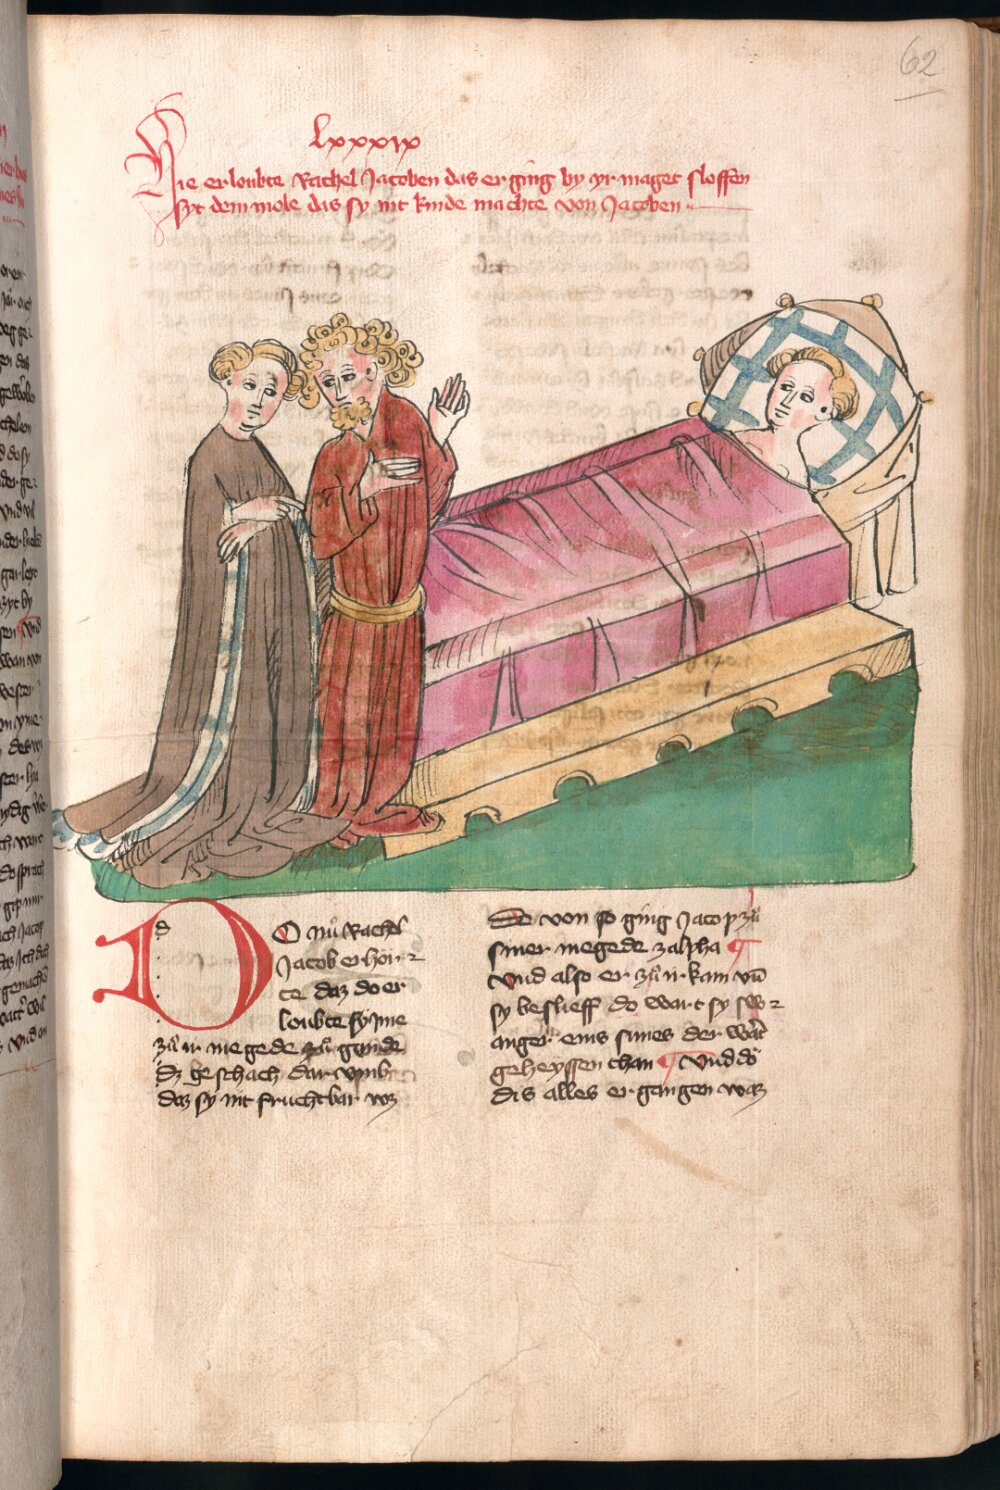 62
Lxxxix
Hie erloubte Rachel Jacoben das er ging by yr maget sloffen
syt dem mole das sy nit kinde machte von Jacoben
DO nuͦ Rachel
Jacob erhoͤr
te daz do er
loubte sy jme
zuͦ ir megede zuͦ gonde
dz geschach dar vmb
daz sy nit fruchtbar wz
Do von so ging Jacop zuͦ
siner megede zalpha ¶
Vnd also er zuͦ ir kam vn̄
sy beslieff do wart sy sw
anger eins sunes der wart
geheyssen than ¶ Vnd do
dis alles ergangen waz